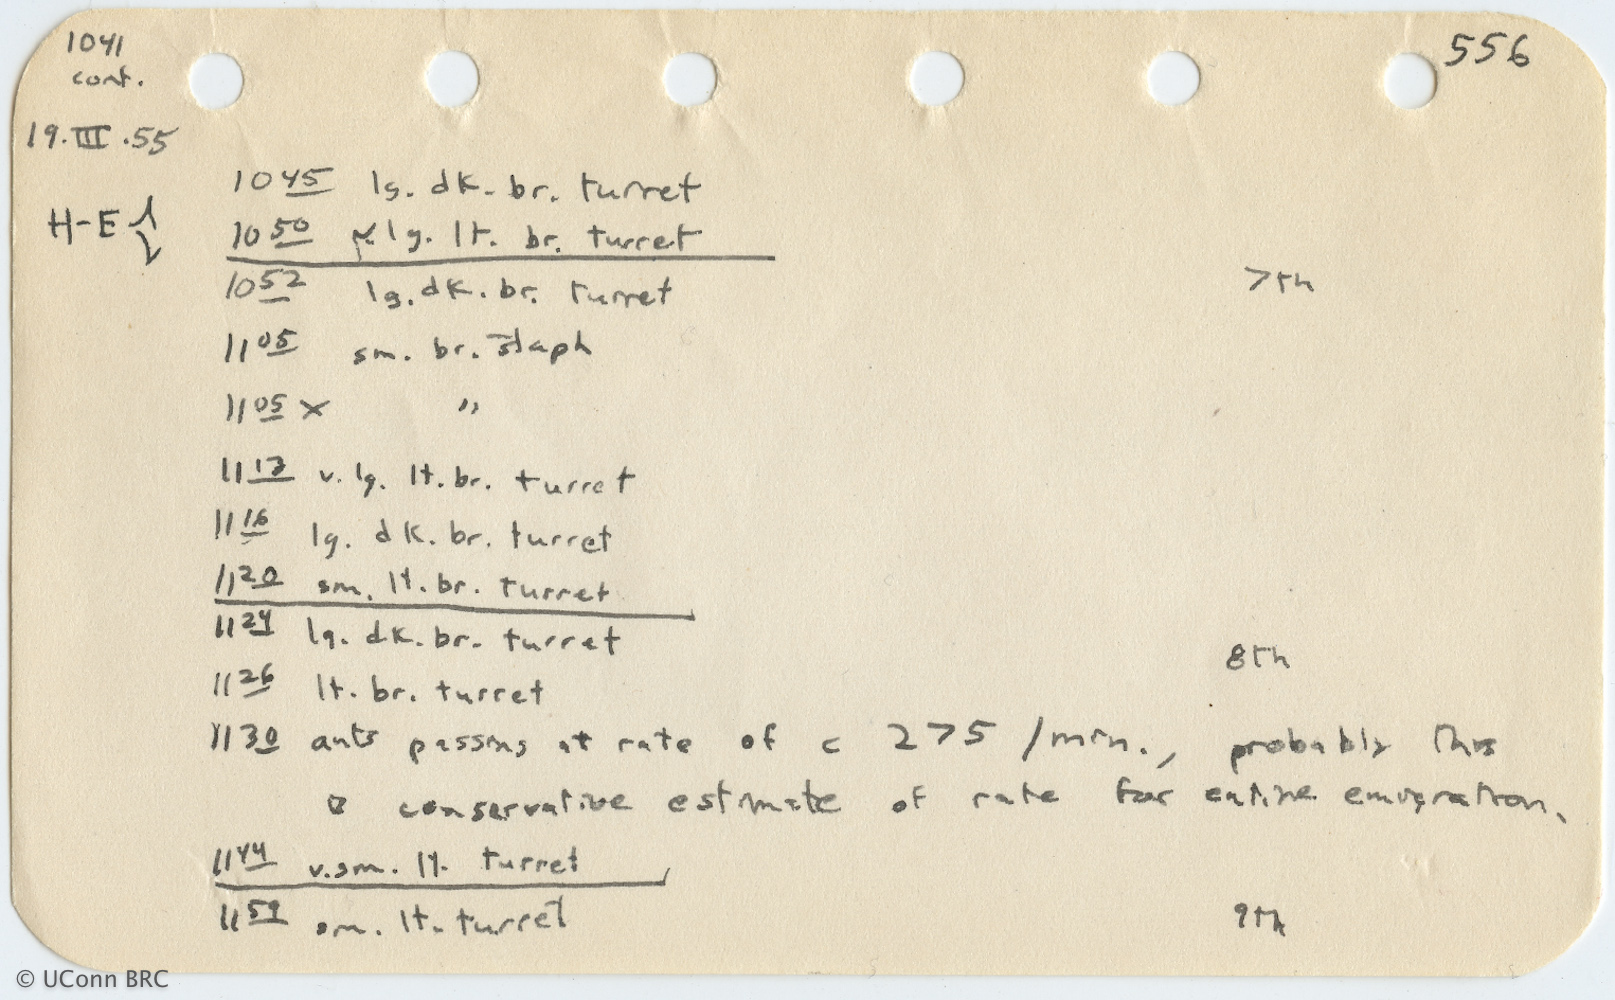 1041
cont.
556
19.III.55
1045 lg. dk. br. turret
H-E {
1050 lg. lt. br. turret
1052 lg. dk. br. turret
7th
1105 sm. br. staph
1105 x "
1113 v. lg. lt. br. turret
1116 lg. dk. br. turret
1120 sm. lt. br. turret
1124 lg. dk. br. turret
8th
1126 lt. br. turret
1130 ants passing at rate of c 275 /min., probably this
conservative estimate of rate for entire emigration.
1144 v. sm. lt. turret
1159 sm. lt. turret
9th
© UConn BRC